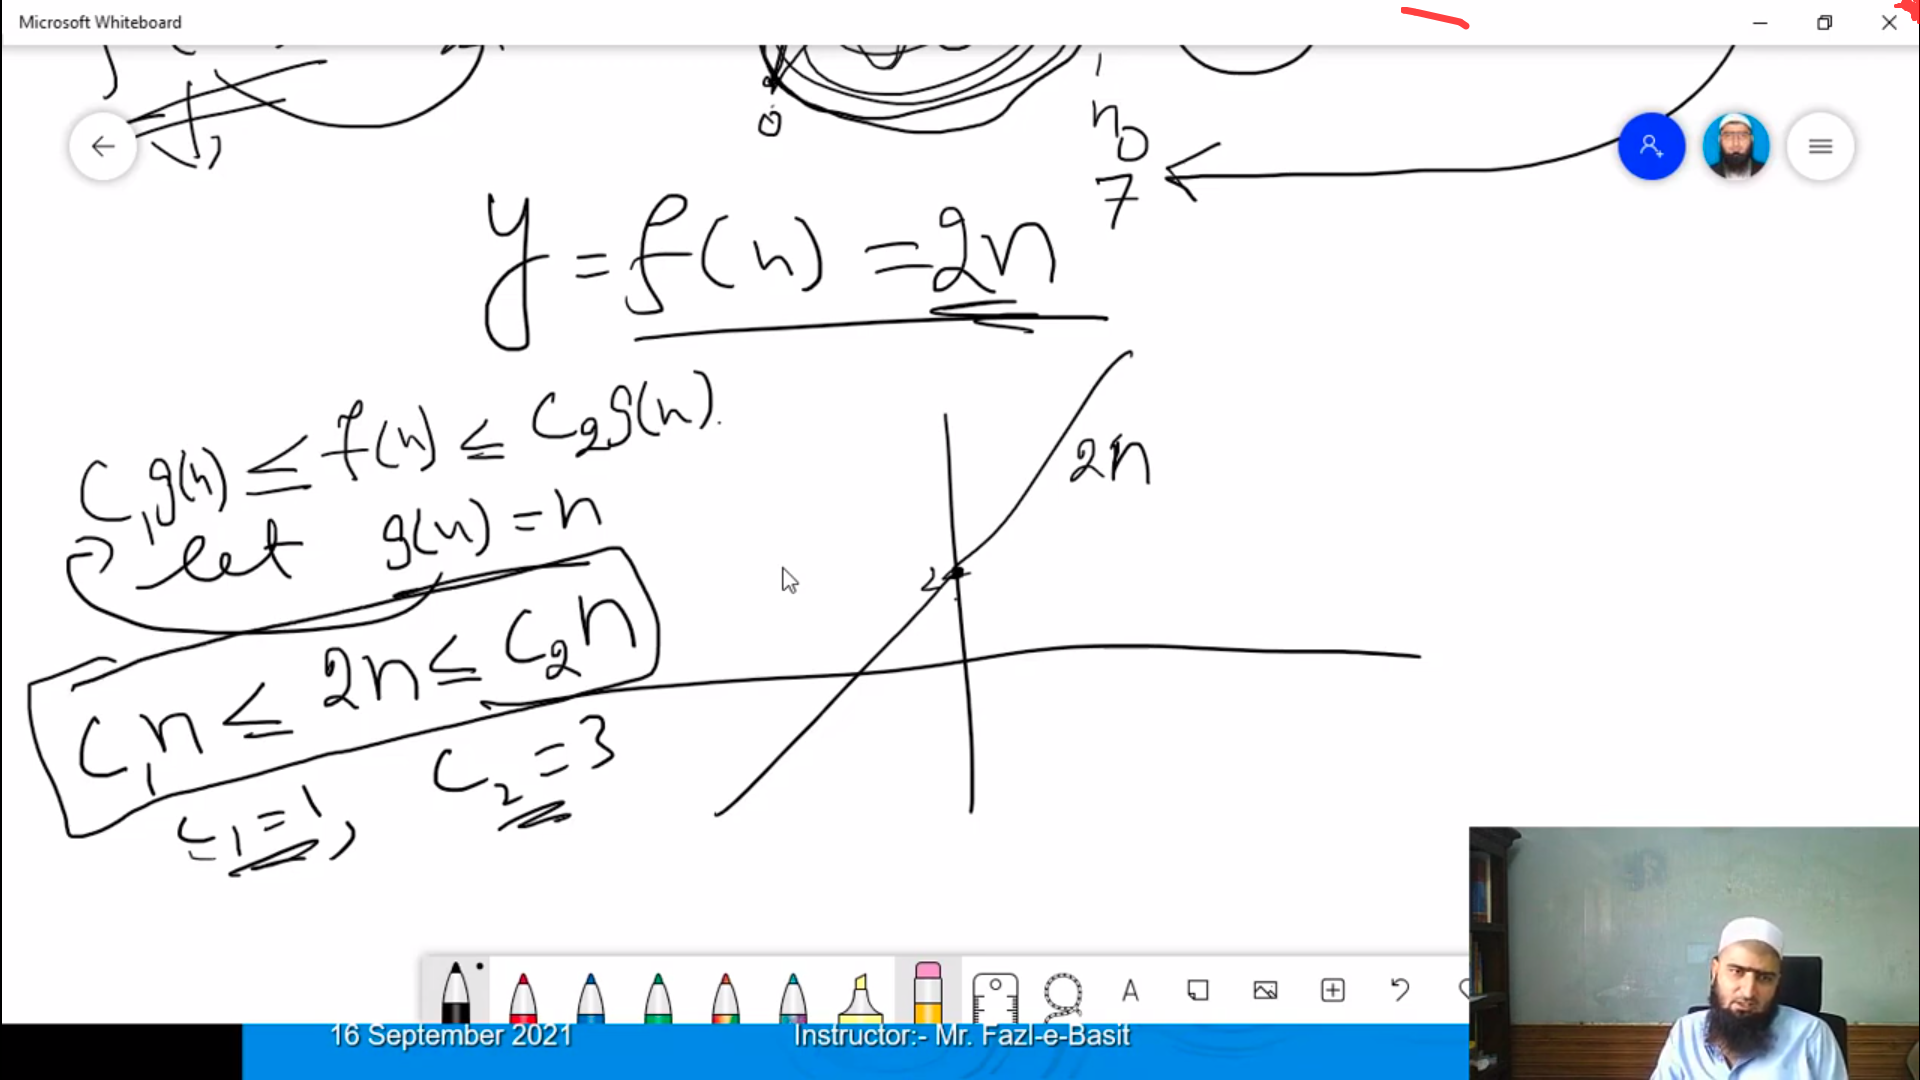 Microsoft Whiteboard
0
n0
7
y = f(n) = 2n
C1g(n) ≤ f(n) ≤ C2g(n).
let g(n) = n
C1n ≤ 2n ≤ C2n
C1 = 1, C2 = 3
2n
2
A
16 September 2021
Instructor:- Mr. Fazl-e-Basit